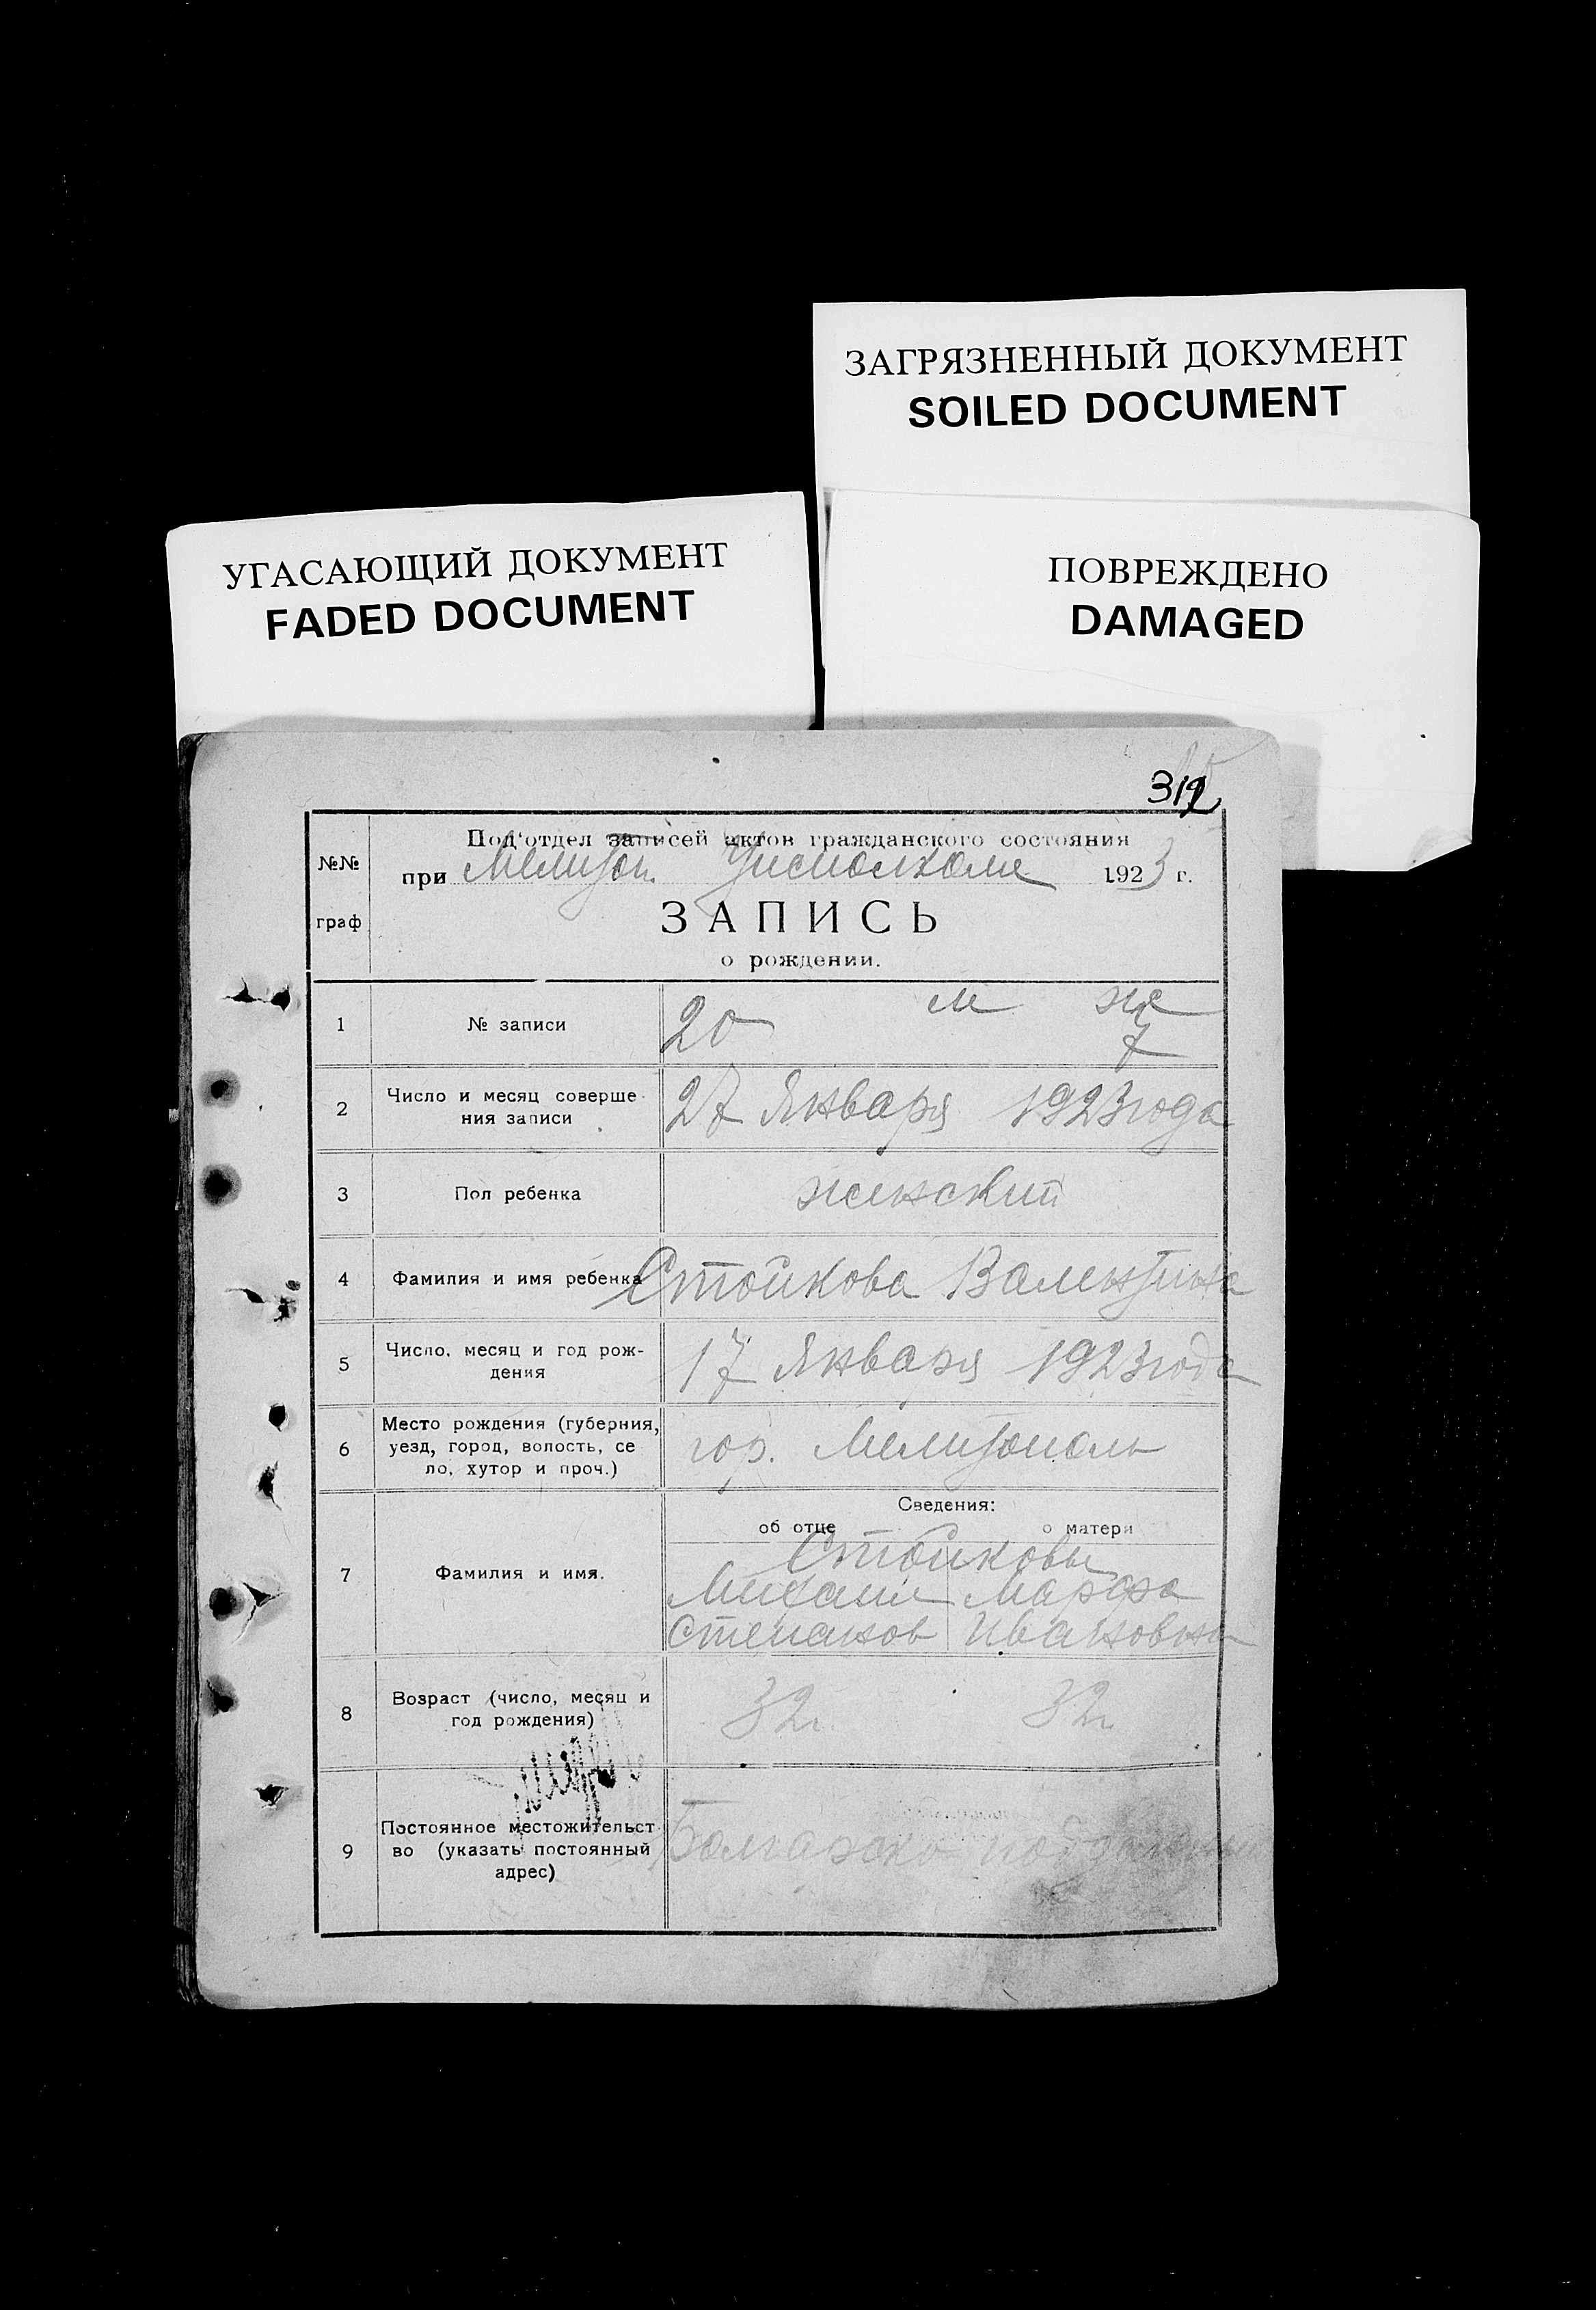 ЗАГРЯЗНЕННЫЙ ДОКУМЕНТ
SOILED DOCUMENT
УГАСАЮЩИЙ ДОКУМЕНТ
FADED DOCUMENT
ПОВРЕЖДЕНО
DAMAGED
312
№№
граф
Под'отдел записей актов гражданского состояния
при Мелитоп. Уисполкоме 1923 г.
ЗАПИСЬ
о рождении.
1 № записи 20 м ж
7
2 Число и месяц соверше-
ния записи
27 Января 1923 года
3 Пол ребенка женский
4 Фамилия и имя ребенка Стойкова Валентина
5 Число, месяц и год рож-
дения
17 Января 1923 года
6 Место рождения (губерния,
уезд, город, волость, се
ло, хутор и проч.)
гор. Мелитополь
Сведения:
об отце о матери
7 Фамилия и имя.
Стойковы
Михаил Марфа
Степанов Ивановна
8 Возраст (число, месяц и
год рождения)
32 г. 32 г.
9 Постоянное местожительст
во (указать постоянный
адрес)
Болгарско подданный